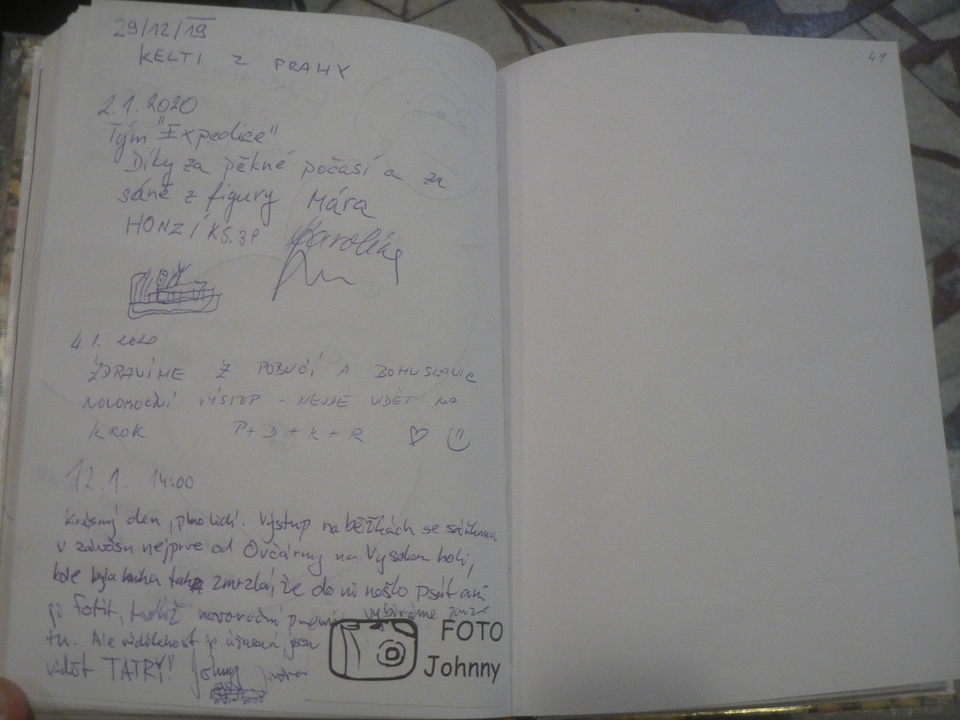 29/12/19
KELTI Z PRAHY
49
2.1.2020
Tým "Expedice"
Díky za pěkné počasí a za
sáně z figury Mára
HONZÍK
Karolína
4.1. 2020
ZDRAVÍME Z A BOHUSLAVIC
NOVOROČNÍ VÝSTUP - NENÍ VIDĚT NA
KROK P+D+K+R ♡
12.1. 14:00
Krásný den, plno lidí. Výstup na běžkách se sáňkama
v závěsu nejprve od Ovčárny na Vysokou holi,
kde byla kniha tak zmrzlá, že do ní nešlo psát ani
ji fotit, novoroční vybíráme
tu. Ale viditelnost je úžasná, jsou
vidět TATRY! Johny
FOTO
Johnny